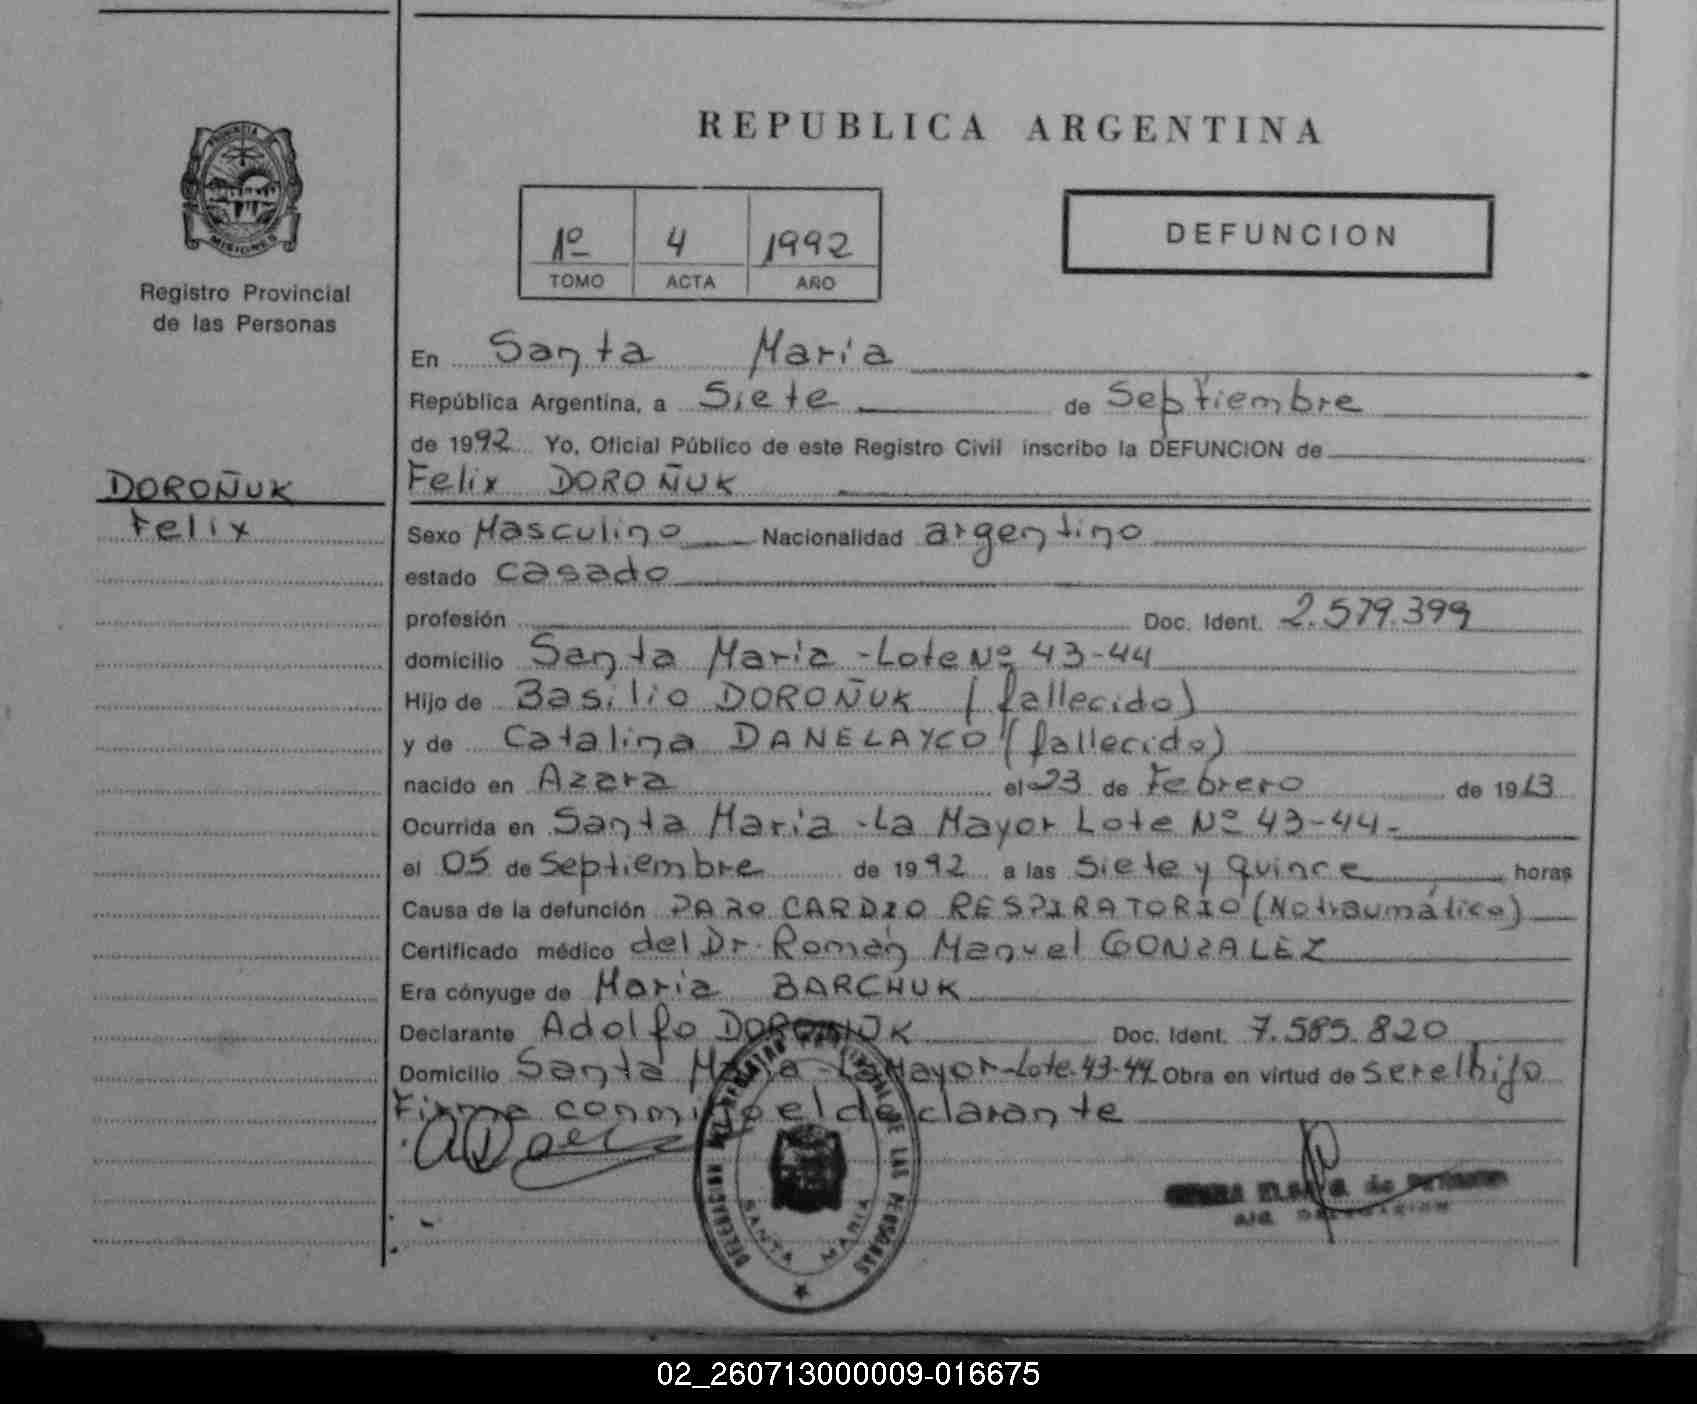 REPUBLICA ARGENTINA
PROVINCIA
MISIONES
Registro Provincial
de las Personas
1º 4 1992
TOMO ACTA AÑO
DEFUNCION
En Santa Maria
República Argentina, a Siete de Septiembre
de 1992 Yo, Oficial Público de este Registro Civil inscribo la DEFUNCION de
DOROÑUK
Felix
Felix DOROÑUK
Sexo Masculino Nacionalidad argentino
estado casado
profesión Doc. Ident. 2.579.399
domicilio Santa Maria - Lote Nº 43-44
Hijo de Basilio DOROÑUK (fallecido)
y de Catalina DANELAYCO (fallecido)
nacido en Azara el 23 de Febrero de 1913
Ocurrida en Santa Maria - La Mayor Lote Nº 43-44-
el 05 de Septiembre de 1992 a las Siete y quince horas
Causa de la defunción PARO CARDIO RESPIRATORIO (No traumático)
Certificado médico del Dr. Román Manuel GONZALEZ
Era cónyuge de Maria BARCHUK
Declarante Adolfo DOROÑUK Doc. Ident. 7.585.820
Domicilio Santa Maria - La Mayor - Lote 43-44 Obra en virtud de ser el hijo
Firma conmigo el declarante
DELEGACION DEL REGISTRO PROVINCIAL DE LAS PERSONAS
SANTA MARIA
02_260713000009-016675